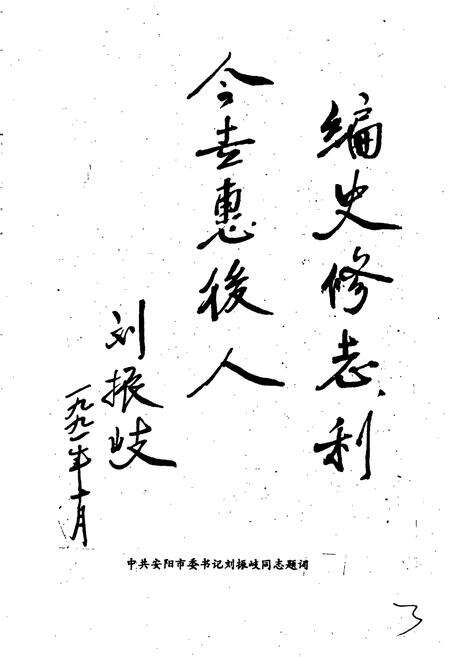 编史修志利
今世惠後人
刘振岐
一九九一年十月
中共安阳市委书记刘振岐同志题词
3